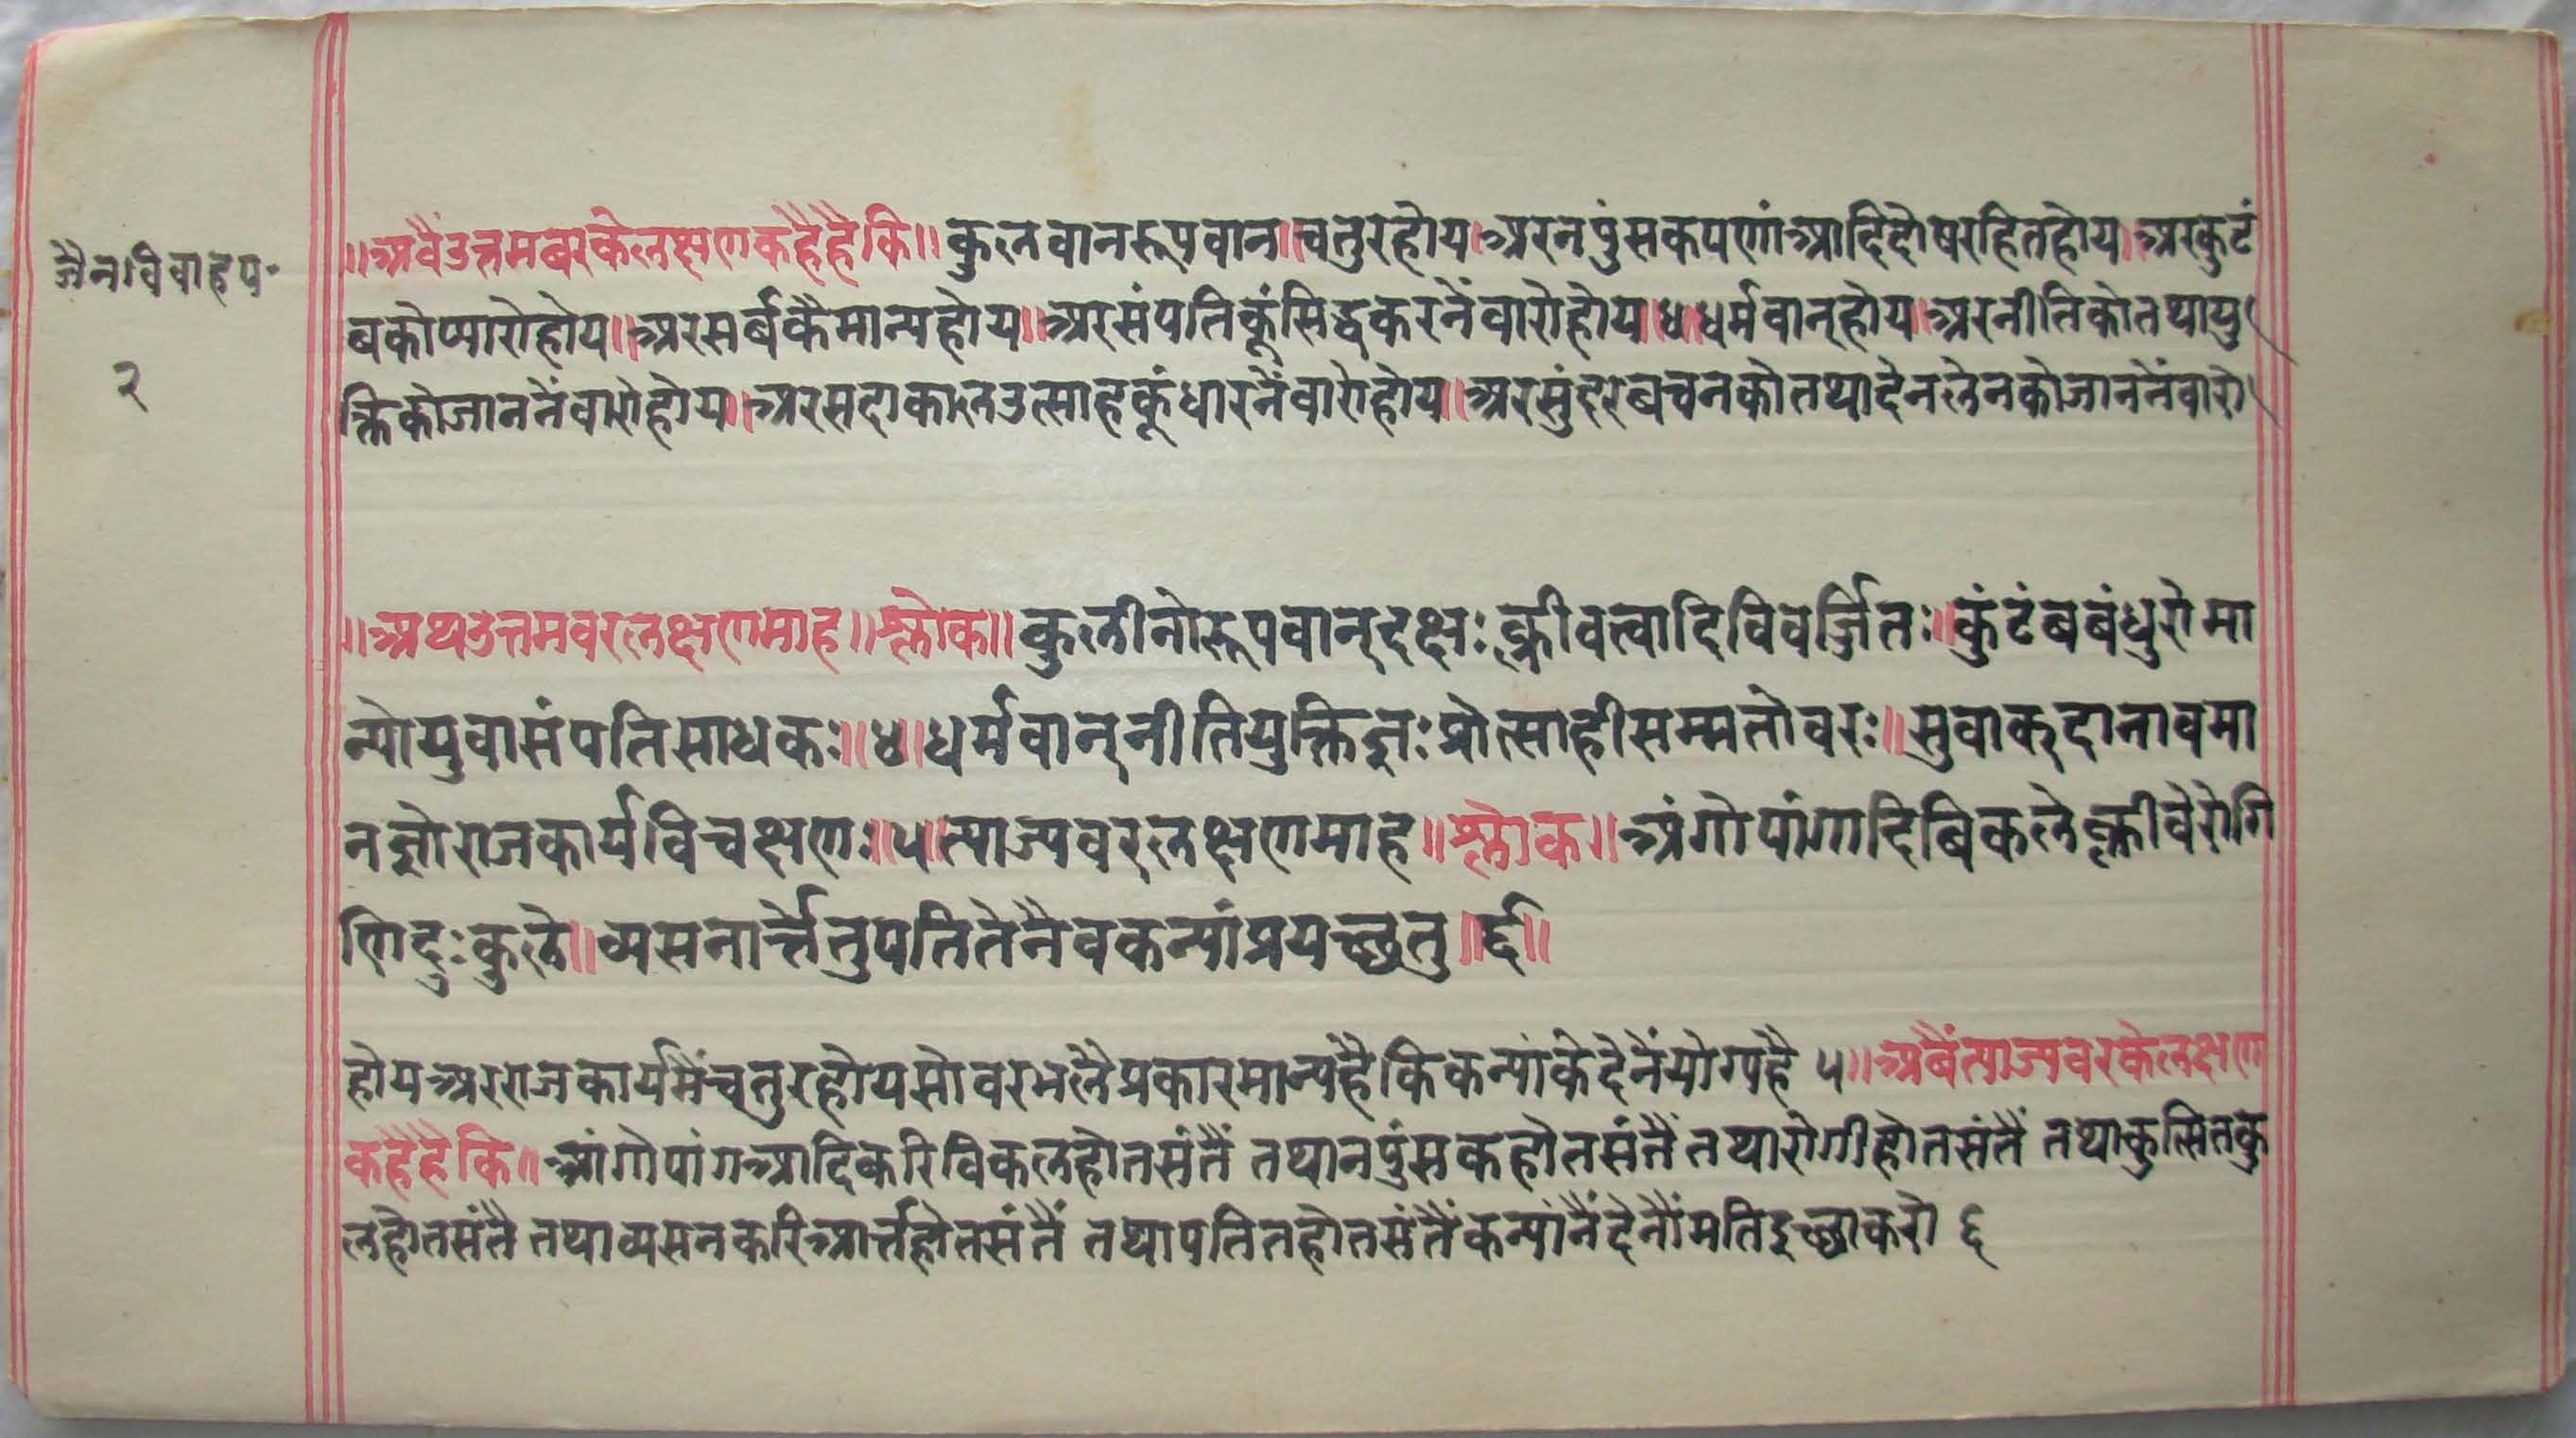 जैनविवाहप॰
२
॥अवैंउत्तमबरकेलक्षणकहैहैकि॥कुलवानरूपवान॥चतुरहोय॥अरनपुंसकपणांआदिदोषरहितहोय॥अरकुटं
बकोप्यारोहोय॥अरसर्बकैमान्यहोय॥अरसंपतिकूंसिद्धकरनैंवारोहोय॥४॥धर्मवान्होय॥अरनीतिकोतथायु
क्तिकोजाननैंवारोहोय॥अरसदाकालउत्साहकूंधारनैंवारोहोय॥अरसुंदरबचनकोतथादेनलेनकोजाननैंवारो
॥अथउत्तमवरलक्षणमाह॥श्लोक॥कुलीनोरूपवान्दक्षःक्लीवत्वादिविवर्ज्जितः॥कुंटंबबंधुरोमा
न्योयुवासंपतिसाधकः॥४॥धर्मवान्नीतियुक्तिज्ञःप्रोत्साहीसम्मतोवरः॥सुवाक्दानावमा
नज्ञोराजकार्यविचक्षणः॥५॥त्याज्यवरलक्षणमाह॥श्लोक॥अंगोपांगादिबिकलेक्लीवेरोगि
णिदुःकुले॥व्यसनार्त्तेतुपतितेनैवकन्यांप्रयच्छतु॥६॥
होयअरराजकार्यमैंचतुरहोयसोवरभलैप्रकारमान्यहैकिकन्यांकेदेनैंयोग्यहै ५॥अबैंत्याज्यवरकेलक्षण
कहैहैकि॥आंगोपांगआदिकरिविकलहोतसंतैं तथानपुंसकहोतसंतैं तथारोगीहोतसंतैं तथाकुत्सितकु
लहोतसंतै तथाव्यसनकरिआर्त्तहोतसंतैं तथापतितहोतसंतैंकन्यांनैंदेनौंमतिइच्छाकरो ६